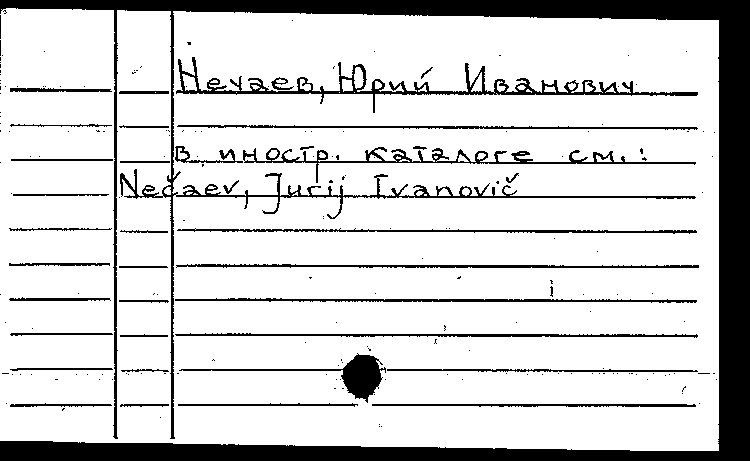 Нечаев, Юрий Иванович
в иностр. каталоге см.:
Nečaev, Jurij Ivanovič